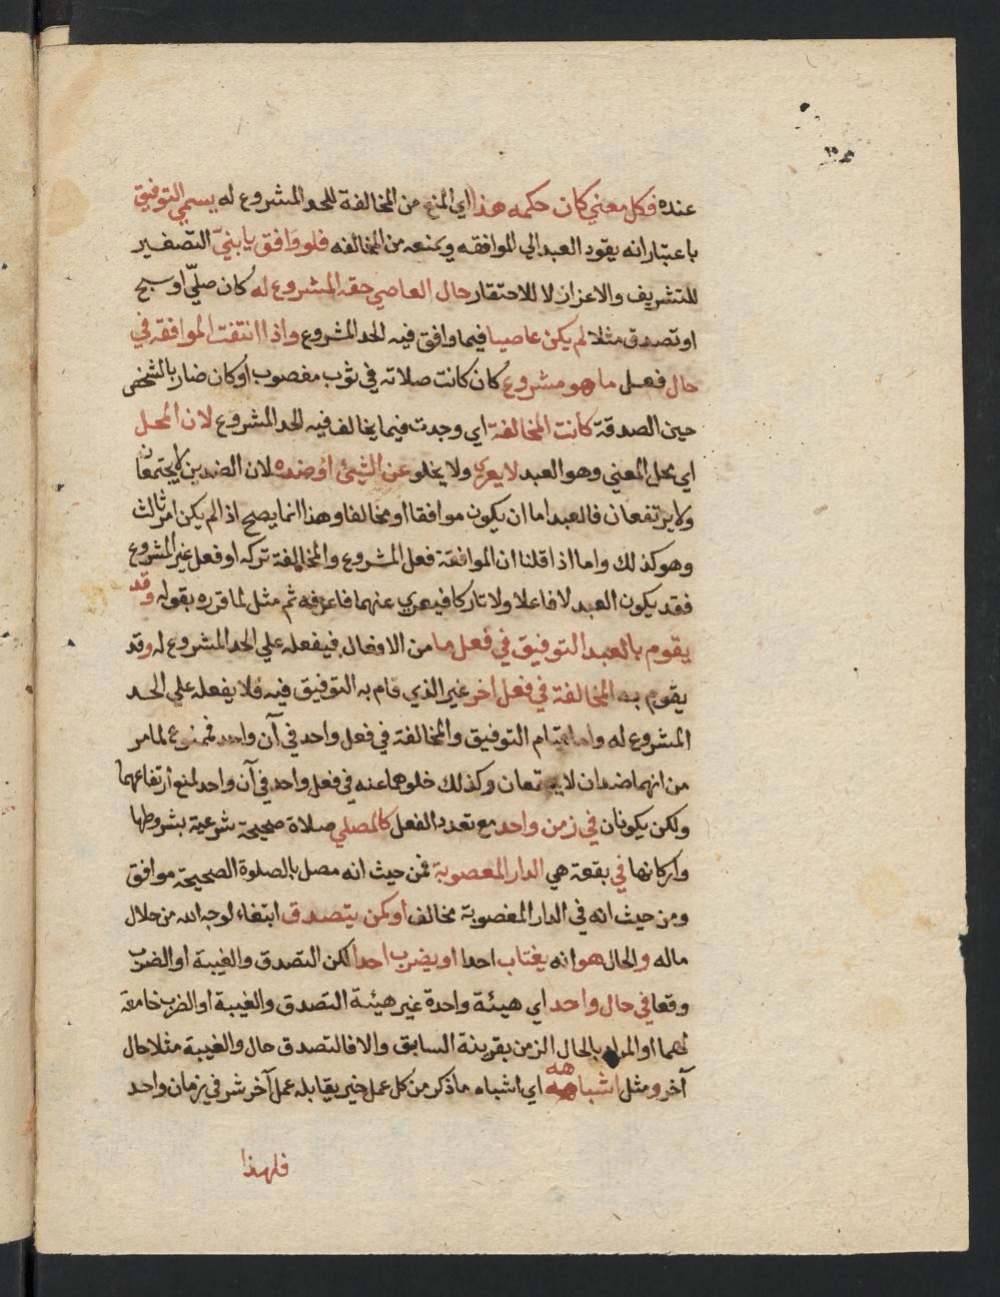 عنده فكل معني كان حكمه هذا اي المنع من المخالفة للحد المشروع له يسمي التوفيق
باعتبار انه يقود العبد الي الموافقه ويمنعه من المخالفه فلو وافق يا بنيّ التصغير
للتشريف والاعزاز لا للاحتقار حال العاصي حقه المشروع له كان صلّي او سبح
او تصدق مثلا لم يكن عاصيا فيما وافق فيه الحد المشروع واذا انتفت الموافقه في
حال فعل ما هو مشروع كان كانت صلاته في ثوب مغصوب او كان ضاربا لشخص
حين الصدقة كانت المخالفة اي وجدت فيما يخالف فيه الحد المشروع لان المحل
اي محل المعني وهو العبد لا يعري ولا يخلو عن الشيئ او ضده لان الضدين لا يجتمعان
ولا يرتفعان فالعبد اما ان يكون موافقا او مخالفا وهذا انما يصح اذ الم يكن امر ثالث
وهو كذلك واما اذ اقلنا ان الموافقة فعل المشروع والمخالفة تركه او فعل غير المشروع
فقد يكون العبد لا فاعلا ولا تاركا فيعري عنهما فاعرفه ثم مثل لما قرره بقوله وقد
يقوم بالعبد التوفيق في فعل ما من الافعال فيفعله علي الحد المشروع له وقد
يقوم به المخالفة في فعل اخر غير الذي قام به التوفيق فيه فلا يفعله علي الحد
المشروع له واما قيام التوفيق والمخالفة في فعل واحد في آن واحد فممنوع لما مر
من انهما ضدان لا يجتمعان وكذلك خلوهما عنه في فعل واحد في آن واحد لمنع ارتفاعهما
ولكن يكونان في زمن واحد مع تعدد الفعل كالمصلي صلاة صحيحة شرعية بشروطها
واركانها في بقعة هي الدار المغصوبة فمن حيث انه مصل بالصلوة الصحيحة موافق
ومن حيث انه في الدار المغصوبة مخالف او كمن يتصدق ابتغاء لوجه الله من حلال
ماله والحال هو انه يغتاب احدا او يضرب احدا لكن التصدق والغيبة او الضرب
وقعا في حال واحد اي هيئة واحدة غير هيئة التصدق والغيبة او الضرب جامعة
لهما او المراد بالحال الزمن بقرينة السابق والا فالتصدق حال والغيبة مثلا حال
آخر ومثل اشباهه اي اشباه ما ذكر من كل عمل خير يقابله عمل آخر شر في زمان واحد
فلهذا